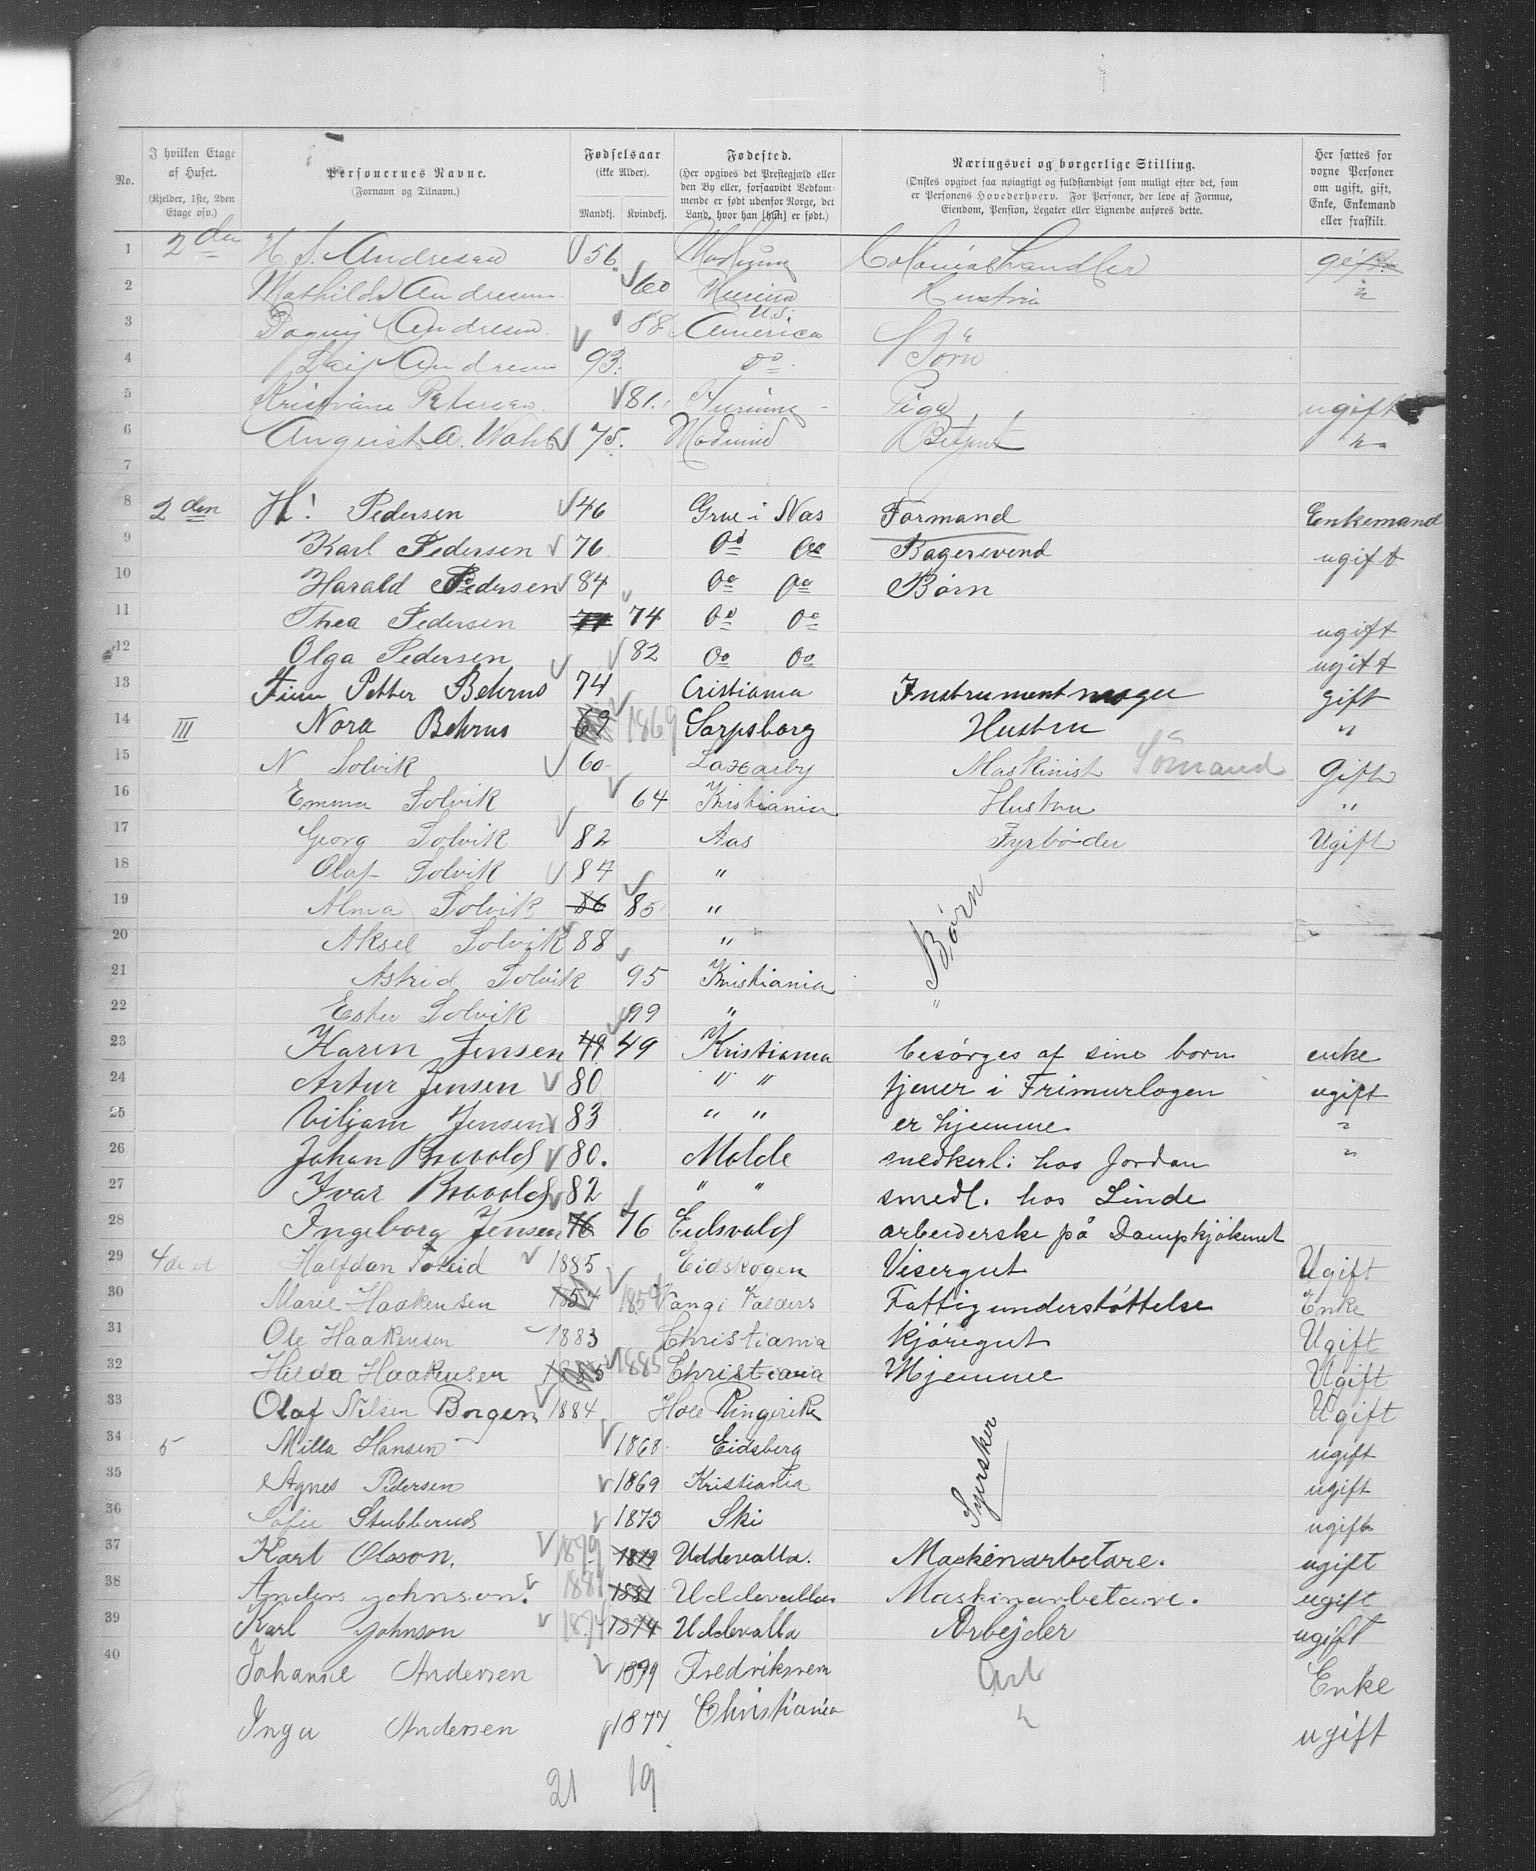 No. I hvilken Etage af Huset. (Kjelder, 1ste, 2den Etage osv.) Personernes Navne. (Fornavn og Tilnavn.) Fødselsaar (ikke Alder). Mandkj. Kvindekj. Fødested. (Her opgives det Prestegjæld eller den By eller, forsaavidt Vedkommende er født udenfor Norge, det Land, hvor han [hun] er født.) Næringsvei og borgerlige Stilling. (Ønskes opgivet saa nøiagtigt og fuldstændigt som muligt efter det, som er Personens Hovederhverv. For Personer, der leve af Formue, Eiendom, Pension, Legater eller Lignende anføres dette. Her sættes for voxne Personer om ugift, gift, Enke, Enkemand eller fraskilt.
1 2den Andresen 56 Colonialhandler gift
2 Mathilde Andresen 60 Hustru "
3 Dagny Andresen 88 U.S. America "
4 Andresen 93 do Børn
5 Petersen 81 Pige ugift
6 August A. 75 Betjent "
7
8 2den H. Pedersen 46 Grue i Nas Formand Enkemand
9 Karl Pedersen 76 Do Do Bagersvend ugift
10 Harald Pedersen 84 Do Do Børn
11 Thea Pedersen 74 Do Do ugift
12 Olga Pedersen 82 Do Do ugift
13 Petter Behrns 74 Cristiania Instrumentmager gift
14 III Nora Behrns 69 1869 Sarpsborg Hustru "
15 N Solvik 60 Laxarby Maskinist Sømand Gift
16 Emma Solvik 64 Kristiania Hustru "
17 Georg Solvik 82 Aas Fyrbøder Ugift
18 Olaf Solvik 84 "
19 Alma Solvik 86 85 " Børn
20 Aksel Solvik 88 "
21 Astrid Solvik 95 Kristiania
22 Ester Solvik 99 " "
23 Karen Jensen 49 49 Kristiania besørges af sine born enke
24 Artur Jensen 80 " " tjener i Frimurlogen ugift
25 Viljam Jensen 83 " " er hjemme "
26 Johan 80. Molde snedkerl: hos Jordan "
27 Ivar 82 " " smedl. hos Linde
28 Ingeborg Jensen 76 76 Eidsvold arbeiderske på Dampkjøkenet
29 4de Halfdan 1885 Eidskogen Visergut Ugift
30 Marie Haakensen 1854 Vang i Valders Fattigunderstøttelse Enke
31 Ole Haakensen 1883 Christiania Kjøregut Ugift
32 Hilda Haakensen 1885 1885 Christiania Hjemme Ugift
33 Olaf Nilsen Borgen 1884 Hole Ringerike Ugift
34 5 Milla Hansen 1868 Eidsberg ugift
35 Agnes Pedersen 1869 Kristiania Syersker ugift
36 Sofie Stubberud 1873 Ski ugift
37 Karl Olsson. 1879 1879 Uddevalla. Maskinarbetare. ugift
38 Anders Johnson. 1881 1881 Uddevalla Maskinarbetare. ugift
39 Karl Johnson 1874 1874 Uddevalla Arbejder ugift
40 Johanne Andersen Fredriksvern Arb Enke
Inga Andersen 1877 Christiania " ugift
21 19